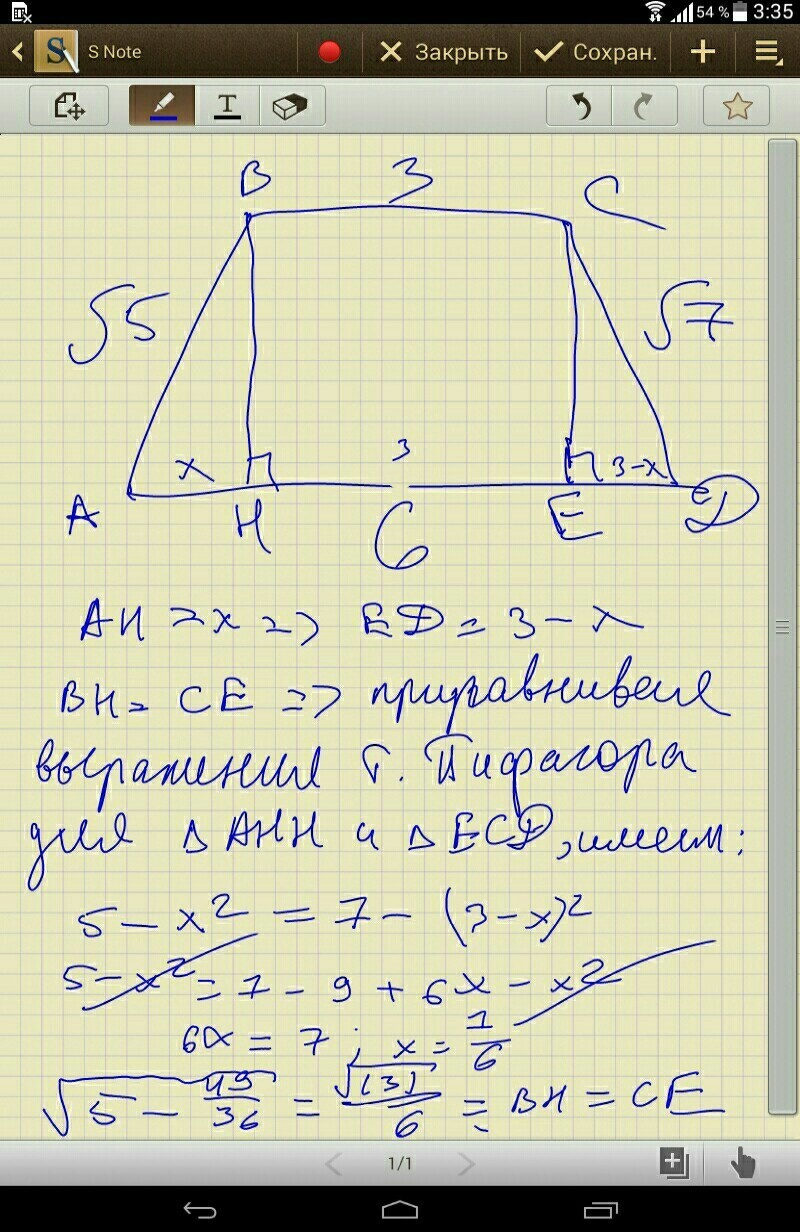 54 % 3:35
S Note Закрыть Сохран.
T
B 3 C
√5 √7
x 3 3-x
A H 6 E D
AH = x => ED = 3 - x
BH = CE => приравнивая
выражения т. Пифагора
для △ AHH и △ ECD, имеем:
5 - x² = 7 - (3-x)²
5 - x² = 7 - 9 + 6x - x²
6x = 7; x = 7/6
√5 - 49/36 = √131/6 = BH = CE
1/1